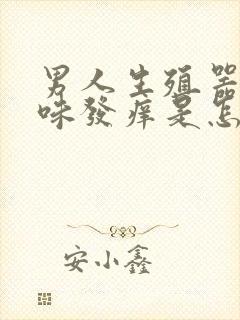 男人生殖器
味發痒是怎
安小鑫